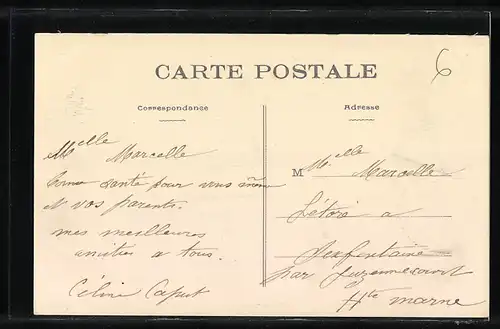 6
CARTE POSTALE
Correspondance
Adresse
Melle Marcelle
bonne santé pour vous même
et vos parents.
mes meilleures
amitiés a tous.
Céline Caput
M Melle Marcelle
Létoré a
Sexfontaine
par Juzennecourt
Hte marne